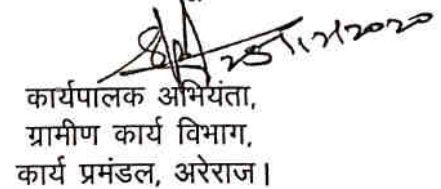 कार्यपालक अभियंता,
ग्रामीण कार्य विभाग,
कार्य प्रमंडल, अरेराज।